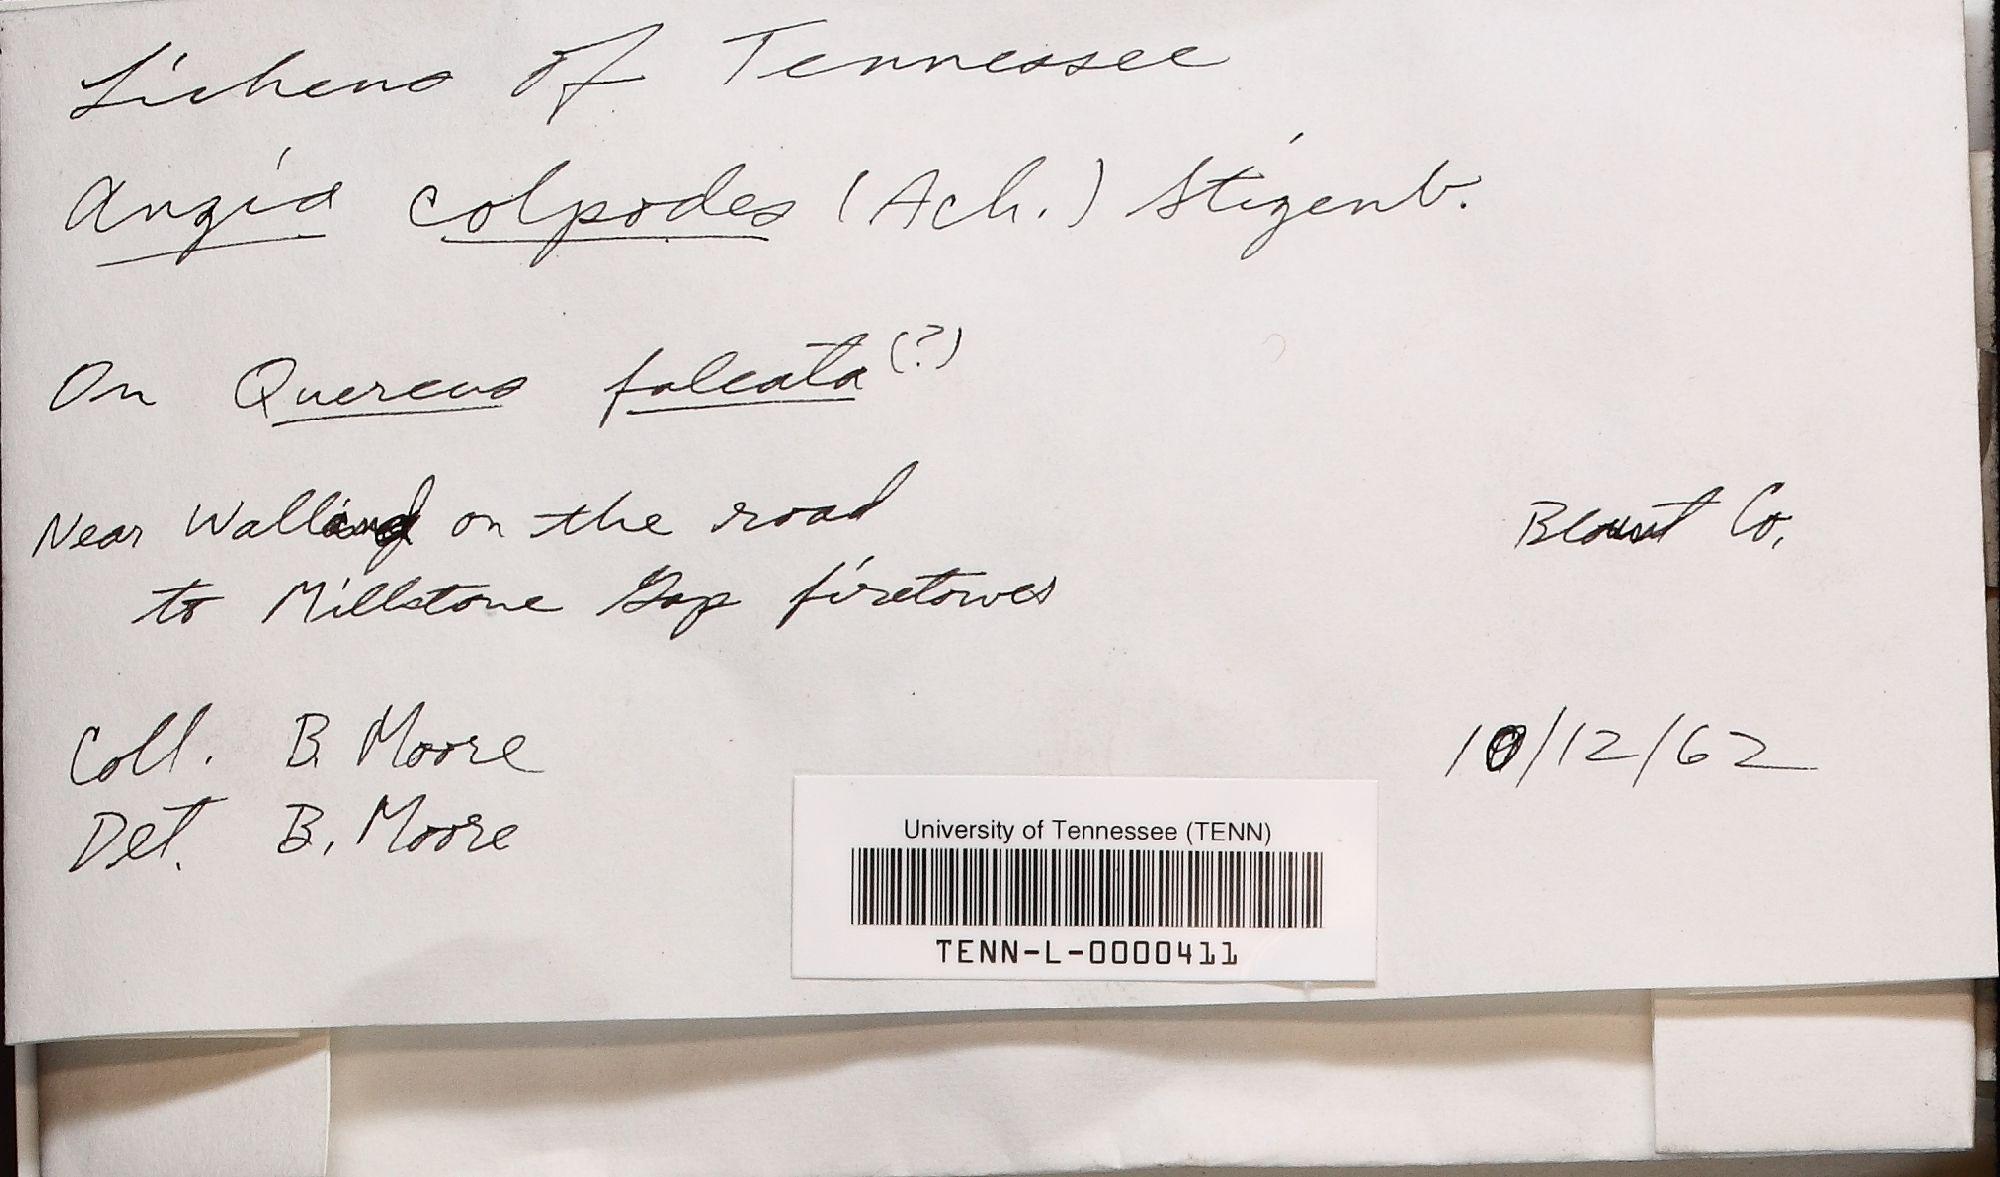 Lichens of Tennessee
Anzia colpodes (Ach.) Stizenb.
On Quercus falcata (?)
Near Walland on the road Blount Co.
to Millstone Gap firetower
Coll. B. Moore 10/12/62
Det. B. Moore
University of Tennessee (TENN)
TENN-L-0000411